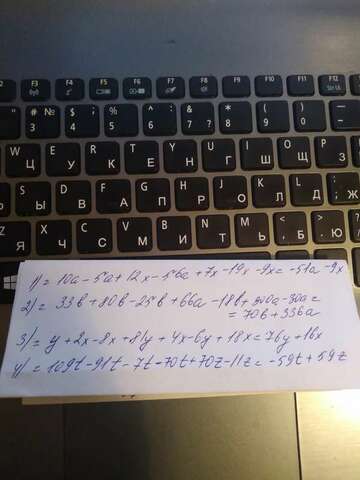 F3 F4 F5 F6 F7 F8 F9 F10 F11 F12
# № $ ; % ^ : & ? * ( )
3 4 5 6 7 8 9 0
W E R T Y U I O P
Ц У К Е Н Г Ш Щ З
S D F G H J K L
Ы В А П Р О Л Д Ж
1) = 10a - 5a + 12x - 56a + 7x - 19x - 9x = -51a - 9x
2) = 33b + 80b - 25b + 66a - 18b + 300a - 30a =
= 70b + 336a
3) = y + 2x - 8x + 81y + 4x - 6y + 18x = 76y + 16x
4) = 109t - 91t - 7t - 70t + 70z - 11z = -59t + 59z